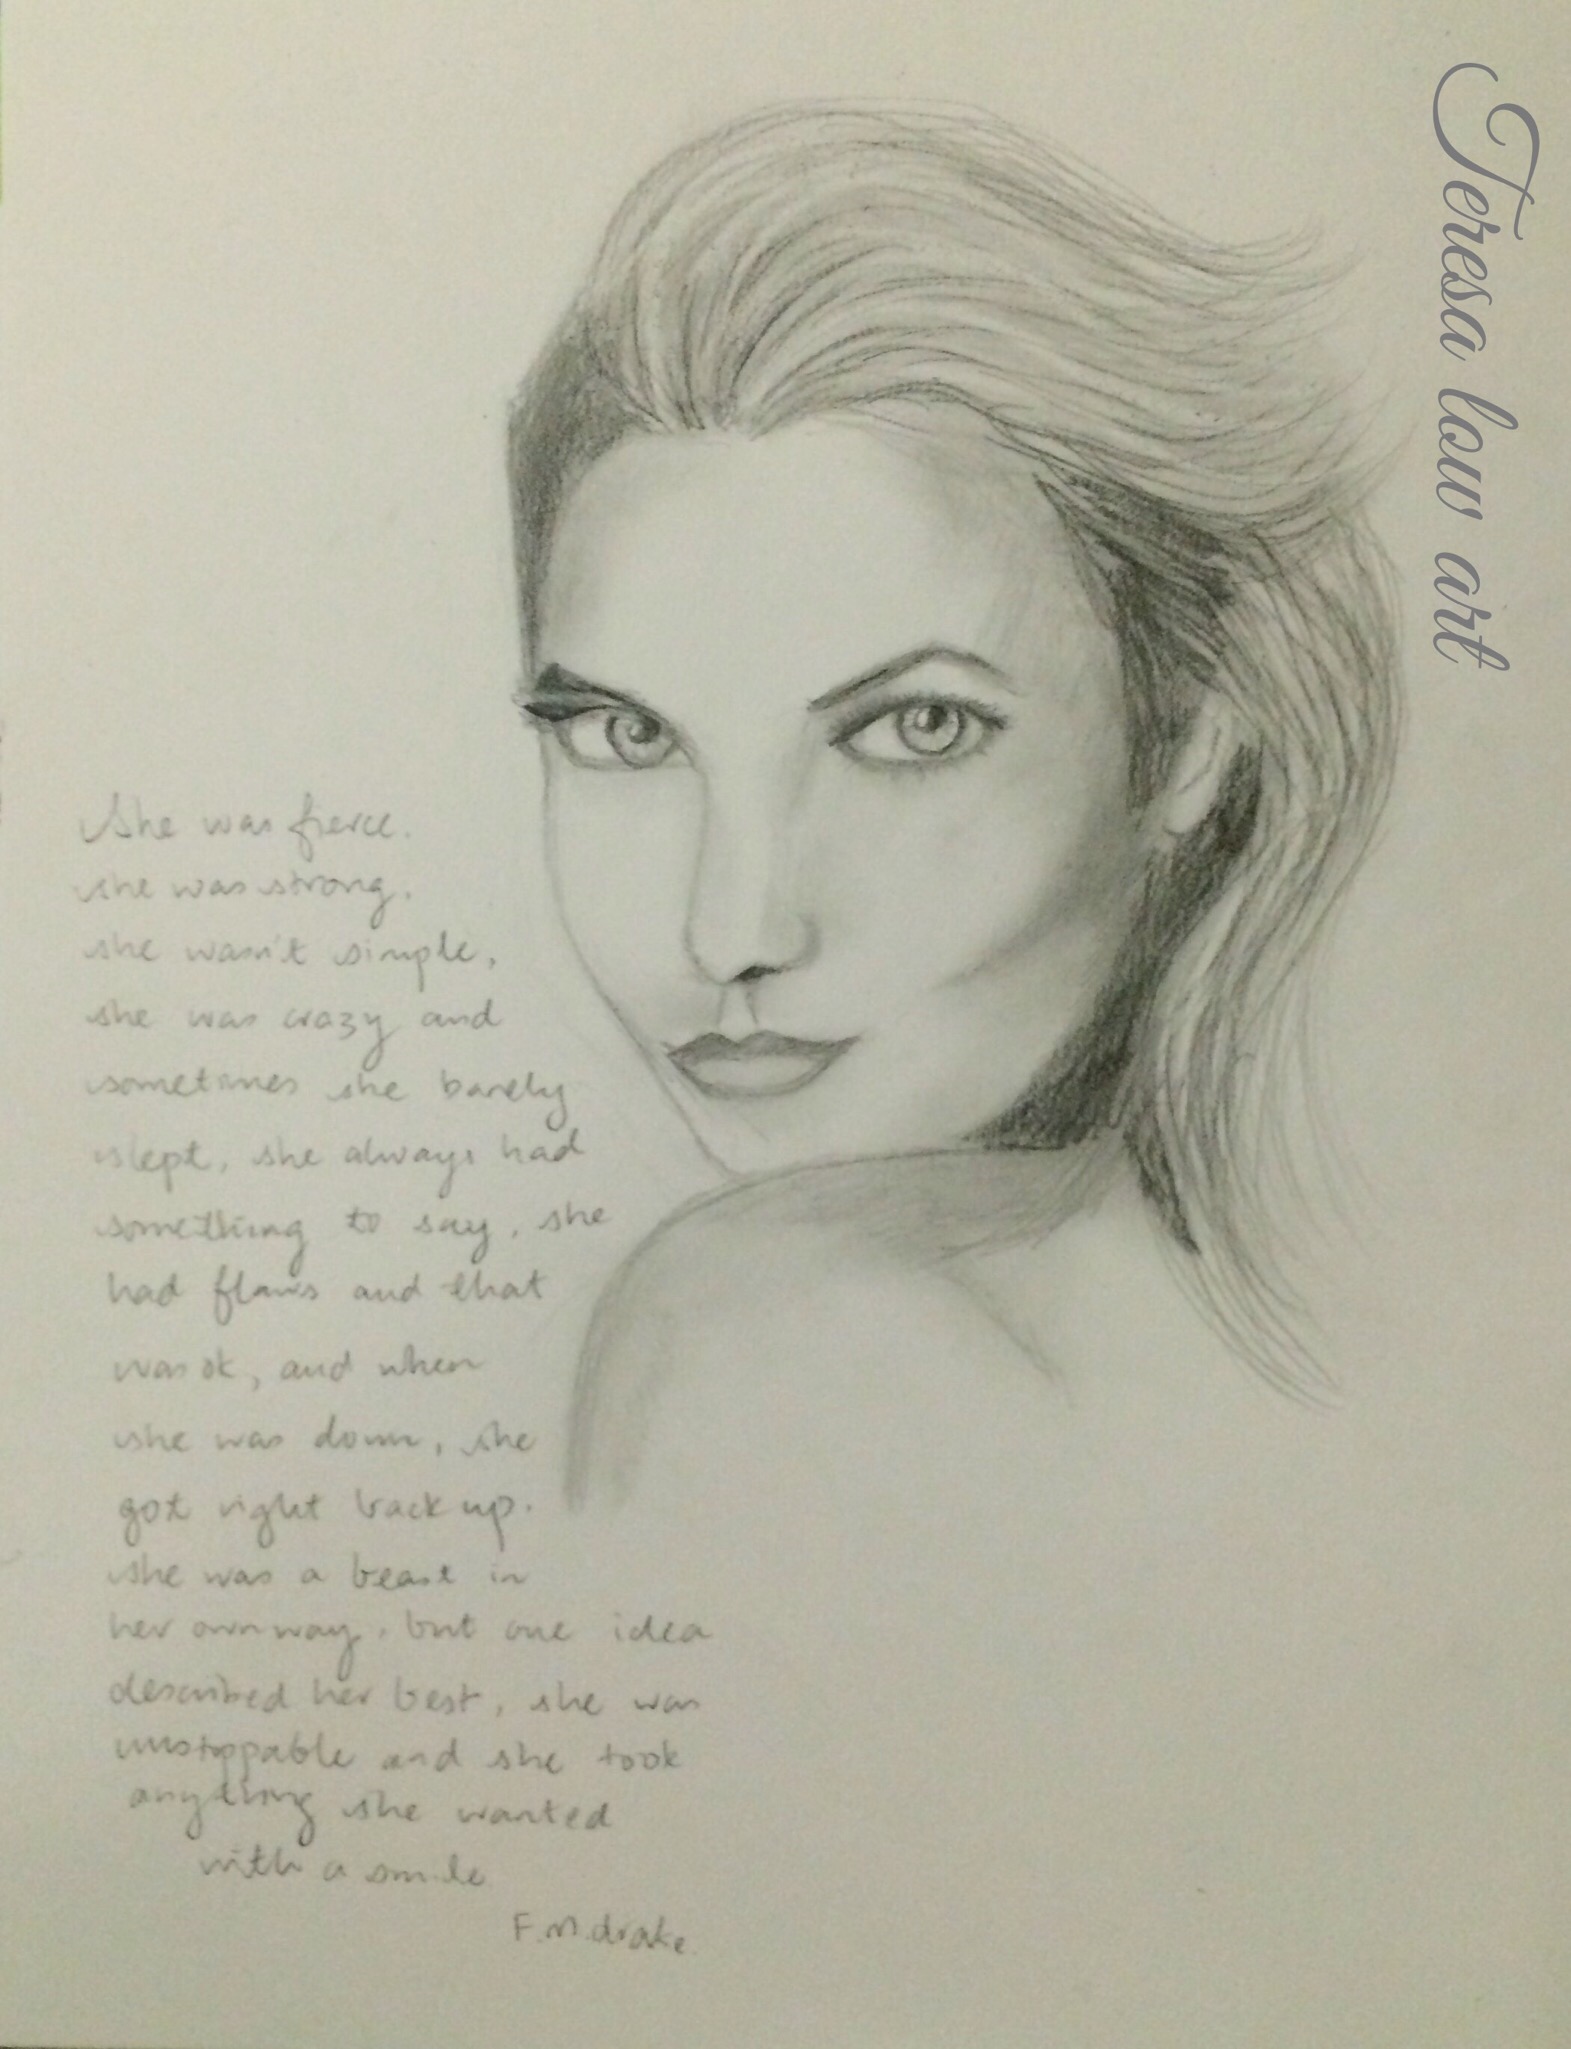 She was fierce.
she was strong.
she wasn't simple,
she was crazy and
sometimes she barely
slept, she always had
something to say, she
had flaws and that
was ok, and when
she was down, she
got right back up.
she was a beast in
her own way, but one idea
described her best, she was
unstoppable and she took
anything she wanted
with a smile
F.M.drake.
Teresa low art